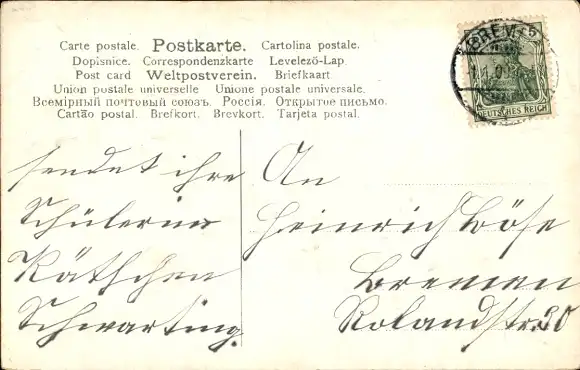 Carte postale. Postkarte. Cartolina postale.
Dopisnice. Correspondenzkarte Levelező-Lap.
Post card Weltpostverein. Briefkaart
Union postale universelle Unione postale universale.
Всемірный почтовый союзъ. Россія. Открытое письмо.
Cartão postal. Brefkort. Brevkort. Tarjeta postal.
BREMEN
DEUTSCHES REICH
sendet ihre
Schülerin
Käthchen
Schwarting.
An
Heinrich Böse
Bremen
Rolandstr. 30